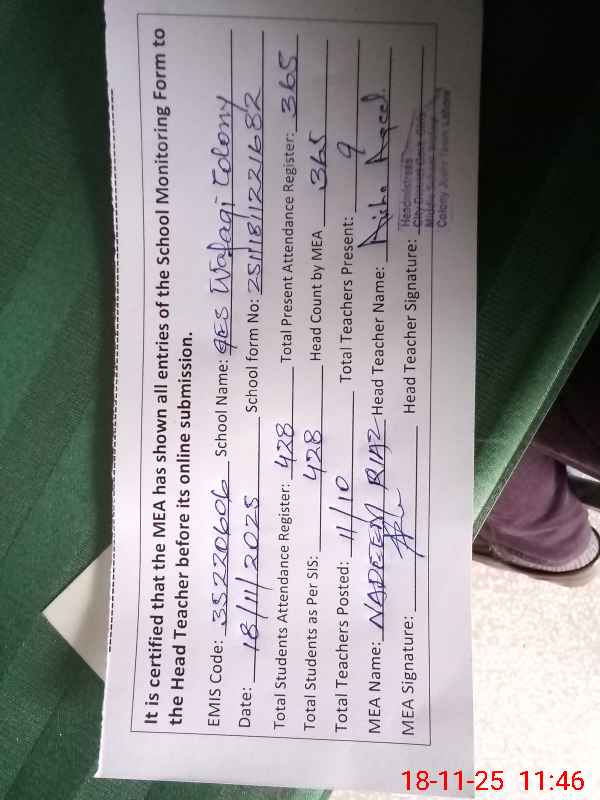 It is certified that the MEA has shown all entries of the School Monitoring Form to
the Head Teacher before its online submission.
EMIS Code: 35220606 School Name: GES Wafaqi Colony
Date: 18/11/2025 School form No:
Total Students Attendance Register: 428 Total Present Attendance Register: 365
Total Students as Per SIS: 428 Head Count by MEA 365
Total Teachers Posted: 11/10 Total Teachers Present: 9
MEA Name: NADEEM RIAZ Head Teacher Name: Aisha Aqeel
MEA Signature: Head Teacher Signature:
Headmistress
Colony Johar Town Lahore
18-11-25 11:46